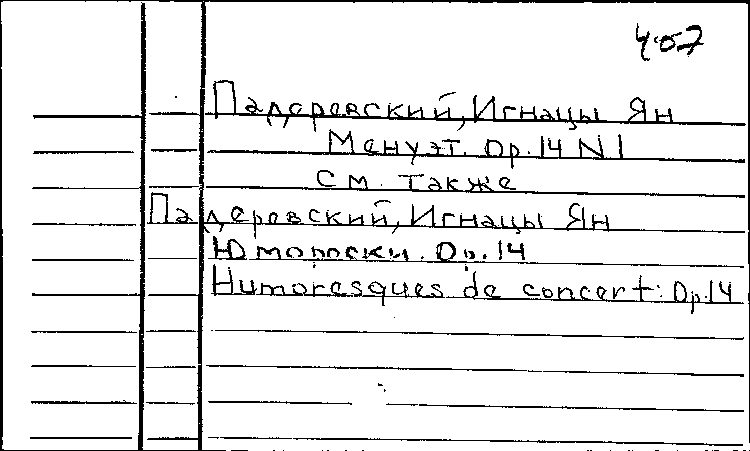 407
Падеревский, Игнацы Ян
Менуэт. Op. 14 N 1
см. также
Падеревский, Игнацы Ян
Юморески. Op. 14
Humoresques de concert: Op. 14